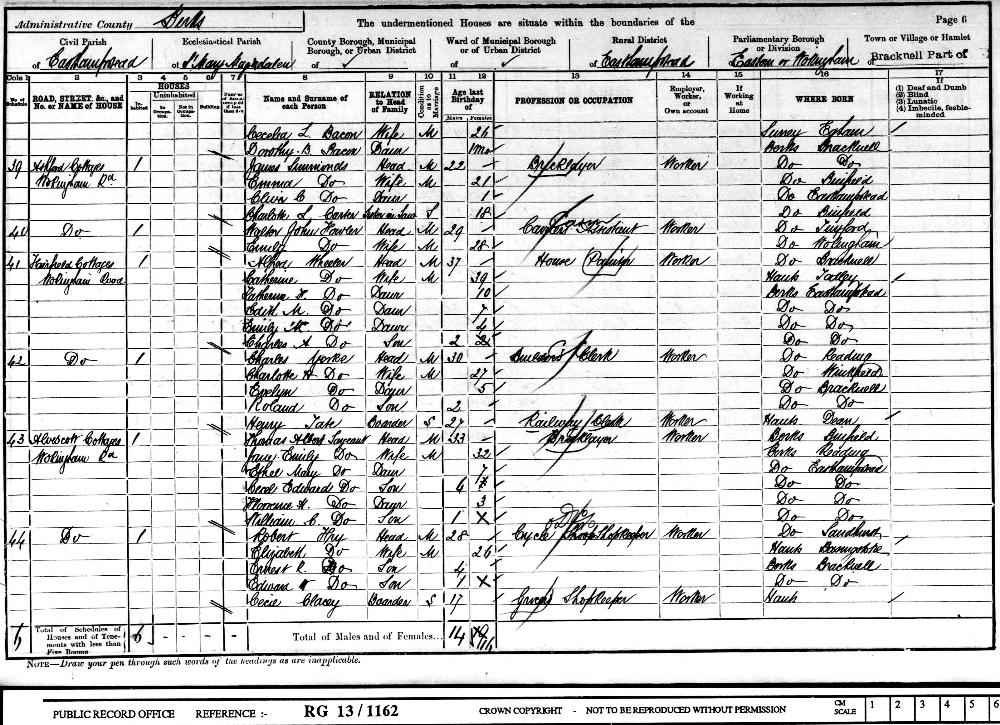 Administrative County Berks The undermentioned Houses are situate within the boundaries of the Page 6
Civil Parish Ecclesiastical Parish County Borough, Municipal Borough, or Urban District Ward of Municipal Borough or of Urban District Rural District Parliamentary Borough or Division Town or Village or Hamlet
of Easthampstead of St Mary Magdalen of of of Easthampstead of Eastern or Wokingham of Bracknell Part of
Cols 1 2 3 4 5 6 7 8 9 10 11 12 13 14 15 16 17
No. of Schedule ROAD, STREET, &c., and No. or NAME of HOUSE HOUSES Inhabited Uninhabited In Occupation Not in Occupation Building Name and Surname of each Person RELATION to Head of Family Condition as to Marriage Age last Birthday of Males Females PROFESSION OR OCCUPATION Employer, Worker, or Own account If Working at Home WHERE BORN If (1) Deaf and Dumb (2) Blind (3) Lunatic (4) Imbecile, feeble-minded
Cecelia L. Bacon Wife M 26 Surrey Egham
Dorothy B Bacon Daur 1mo Berks Bracknell
39 Ashford Cottages 1 James Simmonds Head M 22 Bricklayer Worker Do Do
Wokingham Rd Emma Do Wife M 21 Do Binfield
C Do Daur 1 Do Easthampstead
Charlotte L Carter Sister in Law S 18 Do Binfield
40 Do 1 Walter John Fowler Head M 29 Assistant Worker Do
Emily Do Wife M 28 Do Wokingham
41 Fairfield Cottages 1 Alfred Wheeler Head M 37 House Painter Worker Do Bracknell
Wokingham Road Catherine Do Wife M 39 Hants Tadley
Katherine K. Do Daur 10 Berks Easthampstead
Edith M. Do Daur 7 Do Do
Emily Do Daur 4 Do Do
Charles A Do Son 2 Do Do
42 Do 1 Charles Yorke Head M 30 Builders Clerk Worker Do Reading
Charlotte H Do Wife M 27 Do Winkfield
Evelyn Do Daur 5 Do Bracknell
Roland Do Son 2 Do Do
Henry Tate Boarder S 27 Railway Clerk Worker Hants Dean
43 Alvescott Cottages 1 Thomas Albert Sargeant Head M 33 Bricklayer Worker Berks Binfield
Wokingham Rd Jane Emily Do Wife M 32 Berks Reading
Ethel Mary Do Daur 7 Do Easthampstead
Cecil Edward Do Son 4 Do Do
Florence Do Daur 3 Do Do
William C. Do Son 1 Do Do
44 Do 1 Robert Fry Head M 28 Cycle Shopkeeper Worker Do Sandhurst
Elizabeth Do Wife M 26 Hants Basingstoke
Ernest R. Do Son 4 Berks Bracknell
Edward W Do Son 1 Do Do
Cecie Clacey Boarder S 17 Grocers Shopkeeper Worker Hants
6 Total of Schedules of Houses and of Tenements with less than Five Rooms 6 Total of Males and of Females... 14 16
NOTE—Draw your pen through such words of the headings as are inapplicable.
PUBLIC RECORD OFFICE REFERENCE :- RG 13/1162 CROWN COPYRIGHT - NOT TO BE REPRODUCED WITHOUT PERMISSION CM SCALE 1 2 3 4 5 6